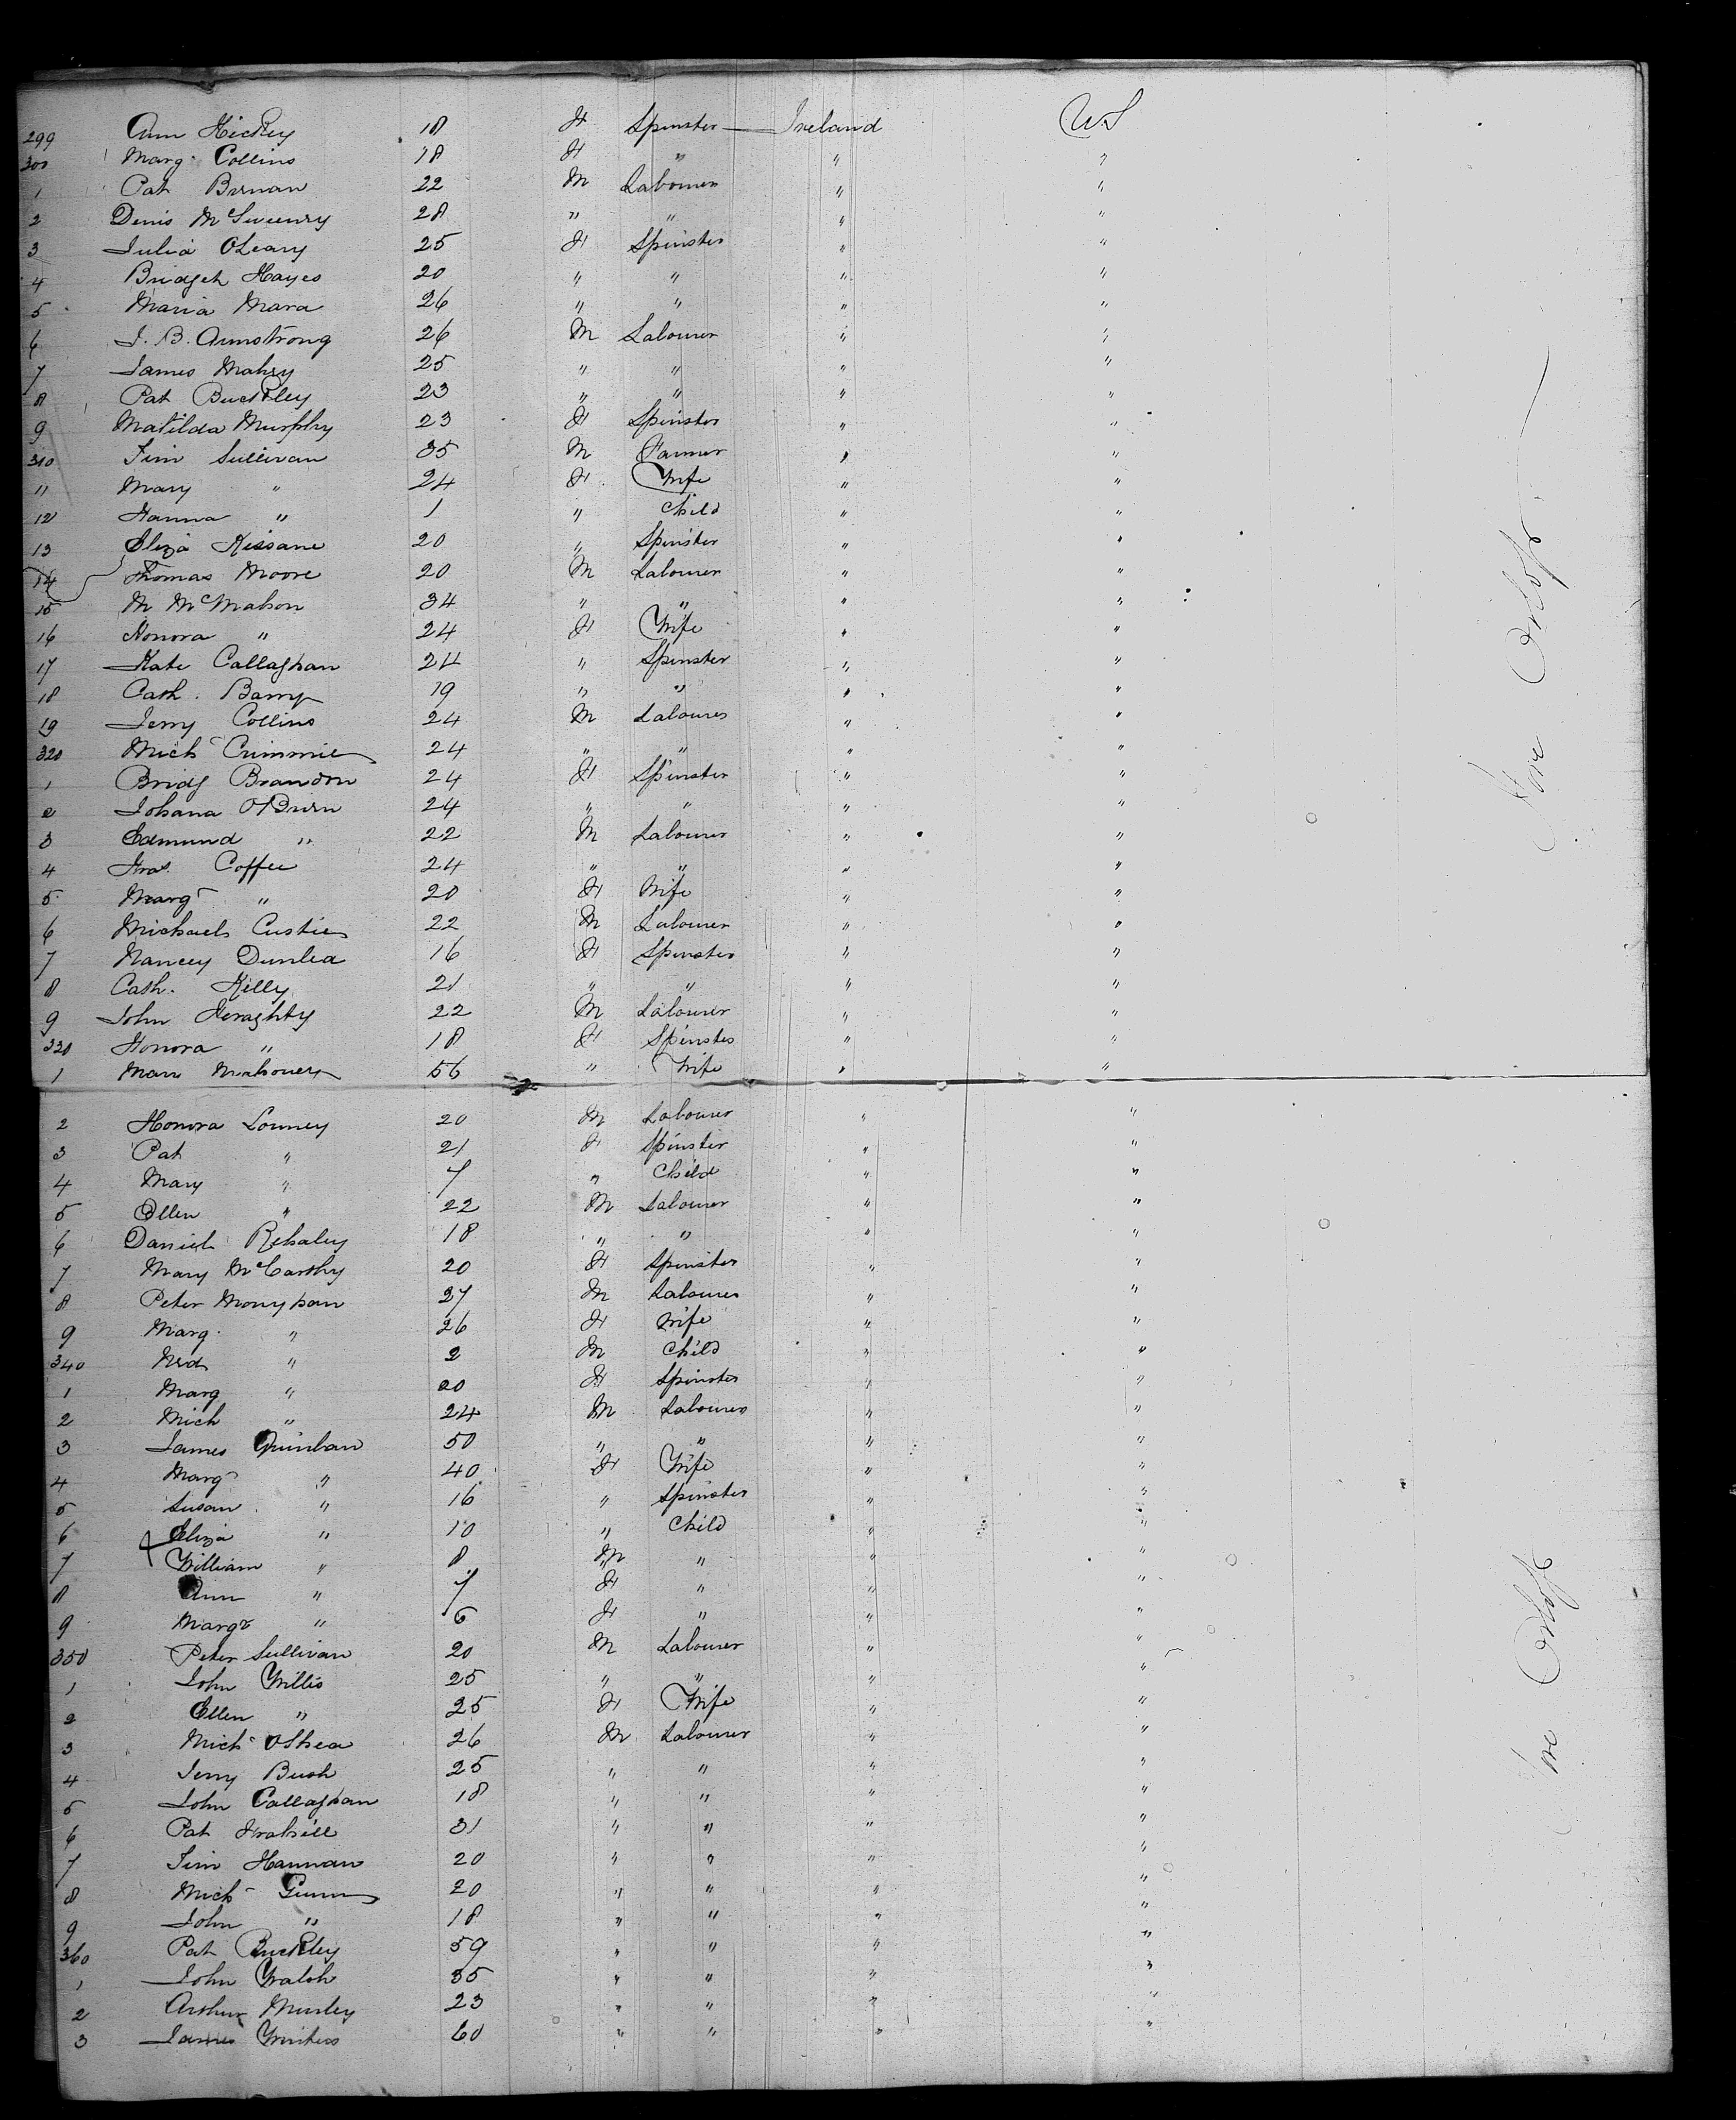 299 Ann Hickey 18 F Spinster Ireland US
300 Marg. Collins 18 F " " "
1 Pat Brenan 22 M Labourer " "
2 Denis McSweeney 28 " " " "
3 Julia OLeary 25 F Spinster " "
4 Bridget Hayes 20 " " " "
5 Maria Mara 26 " " " "
6 J. B. Armstrong 26 M Labourer " "
7 James 25 " " " "
8 Pat Buckley 23 " " " "
9 Matilda Murphy 23 F Spinster " "
310 Tim Sullivan 35 M Farmer " "
11 Mary " 24 F Wife " "
12 Hanna " 1 " Child " "
13 Eliza Kissane 20 " Spinster " "
14 Thomas Moore 20 M Labourer " "
15 M McMahon 34 " " " "
16 Honora " 24 F Wife " "
17 Kate Callaghan 24 " Spinster " "
18 Cath. Barry 19 " " " "
19 Jerry Collins 24 M Labourer " "
320 Mich 24 " " " "
1 Bridg Brandon 24 F Spinster " "
2 Johana OBrien 24 " " " "
3 Edmund " 22 M Labourer " "
4 Coffee 24 " " " "
5 Margt " 20 F Wife " "
6 Michael 22 M Labourer " "
7 Nancey Dunlea 16 F Spinster " "
8 Cath. Kelly 21 " " " "
9 John Geraghty 22 M Labourer " "
330 Honora " 18 F Spinster " "
1 Mary Mahoney 56 " Wife " "
2 Honora Looney 20 M Labourer " "
3 Pat " 21 F Spinster " "
4 Mary " 7 " Child " "
5 Ellen " 22 M Labourer " "
6 Daniel 18 " " " "
7 Mary McCarthy 20 F Spinster " "
8 Peter Monyhan 27 M Labourer " "
9 Marg. " 26 F Wife " "
340 Ned " 2 M Child " "
1 Marg " 20 F Spinster " "
2 Mich " 24 M Labourer " "
3 James Quinlan 50 " " " "
4 Margt " 40 F Wife " "
5 Susan " 16 " Spinster " "
6 Eliza " 10 " Child " "
7 William " 8 M " " "
8 Ann " 7 F " " "
9 Margt " 6 F " " "
350 Peter Sullivan 20 M Labourer " "
1 John Willis 25 " " " "
2 Ellen " 25 F Wife " "
3 Mich OShea 26 M Labourer " "
4 Jerry Bush 25 " " " "
5 John Callaghan 18 " " " "
6 Pat 31 " " " "
7 Tim Hannan 20 " " " "
8 Mich 20 " " " "
9 John " 18 " " " "
360 Pat Buckley 59 " " " "
1 John Walsh 35 " " " "
2 Arthur 23 " " " "
3 James 60 " " " "
Fore Orlop
Fore Orlop